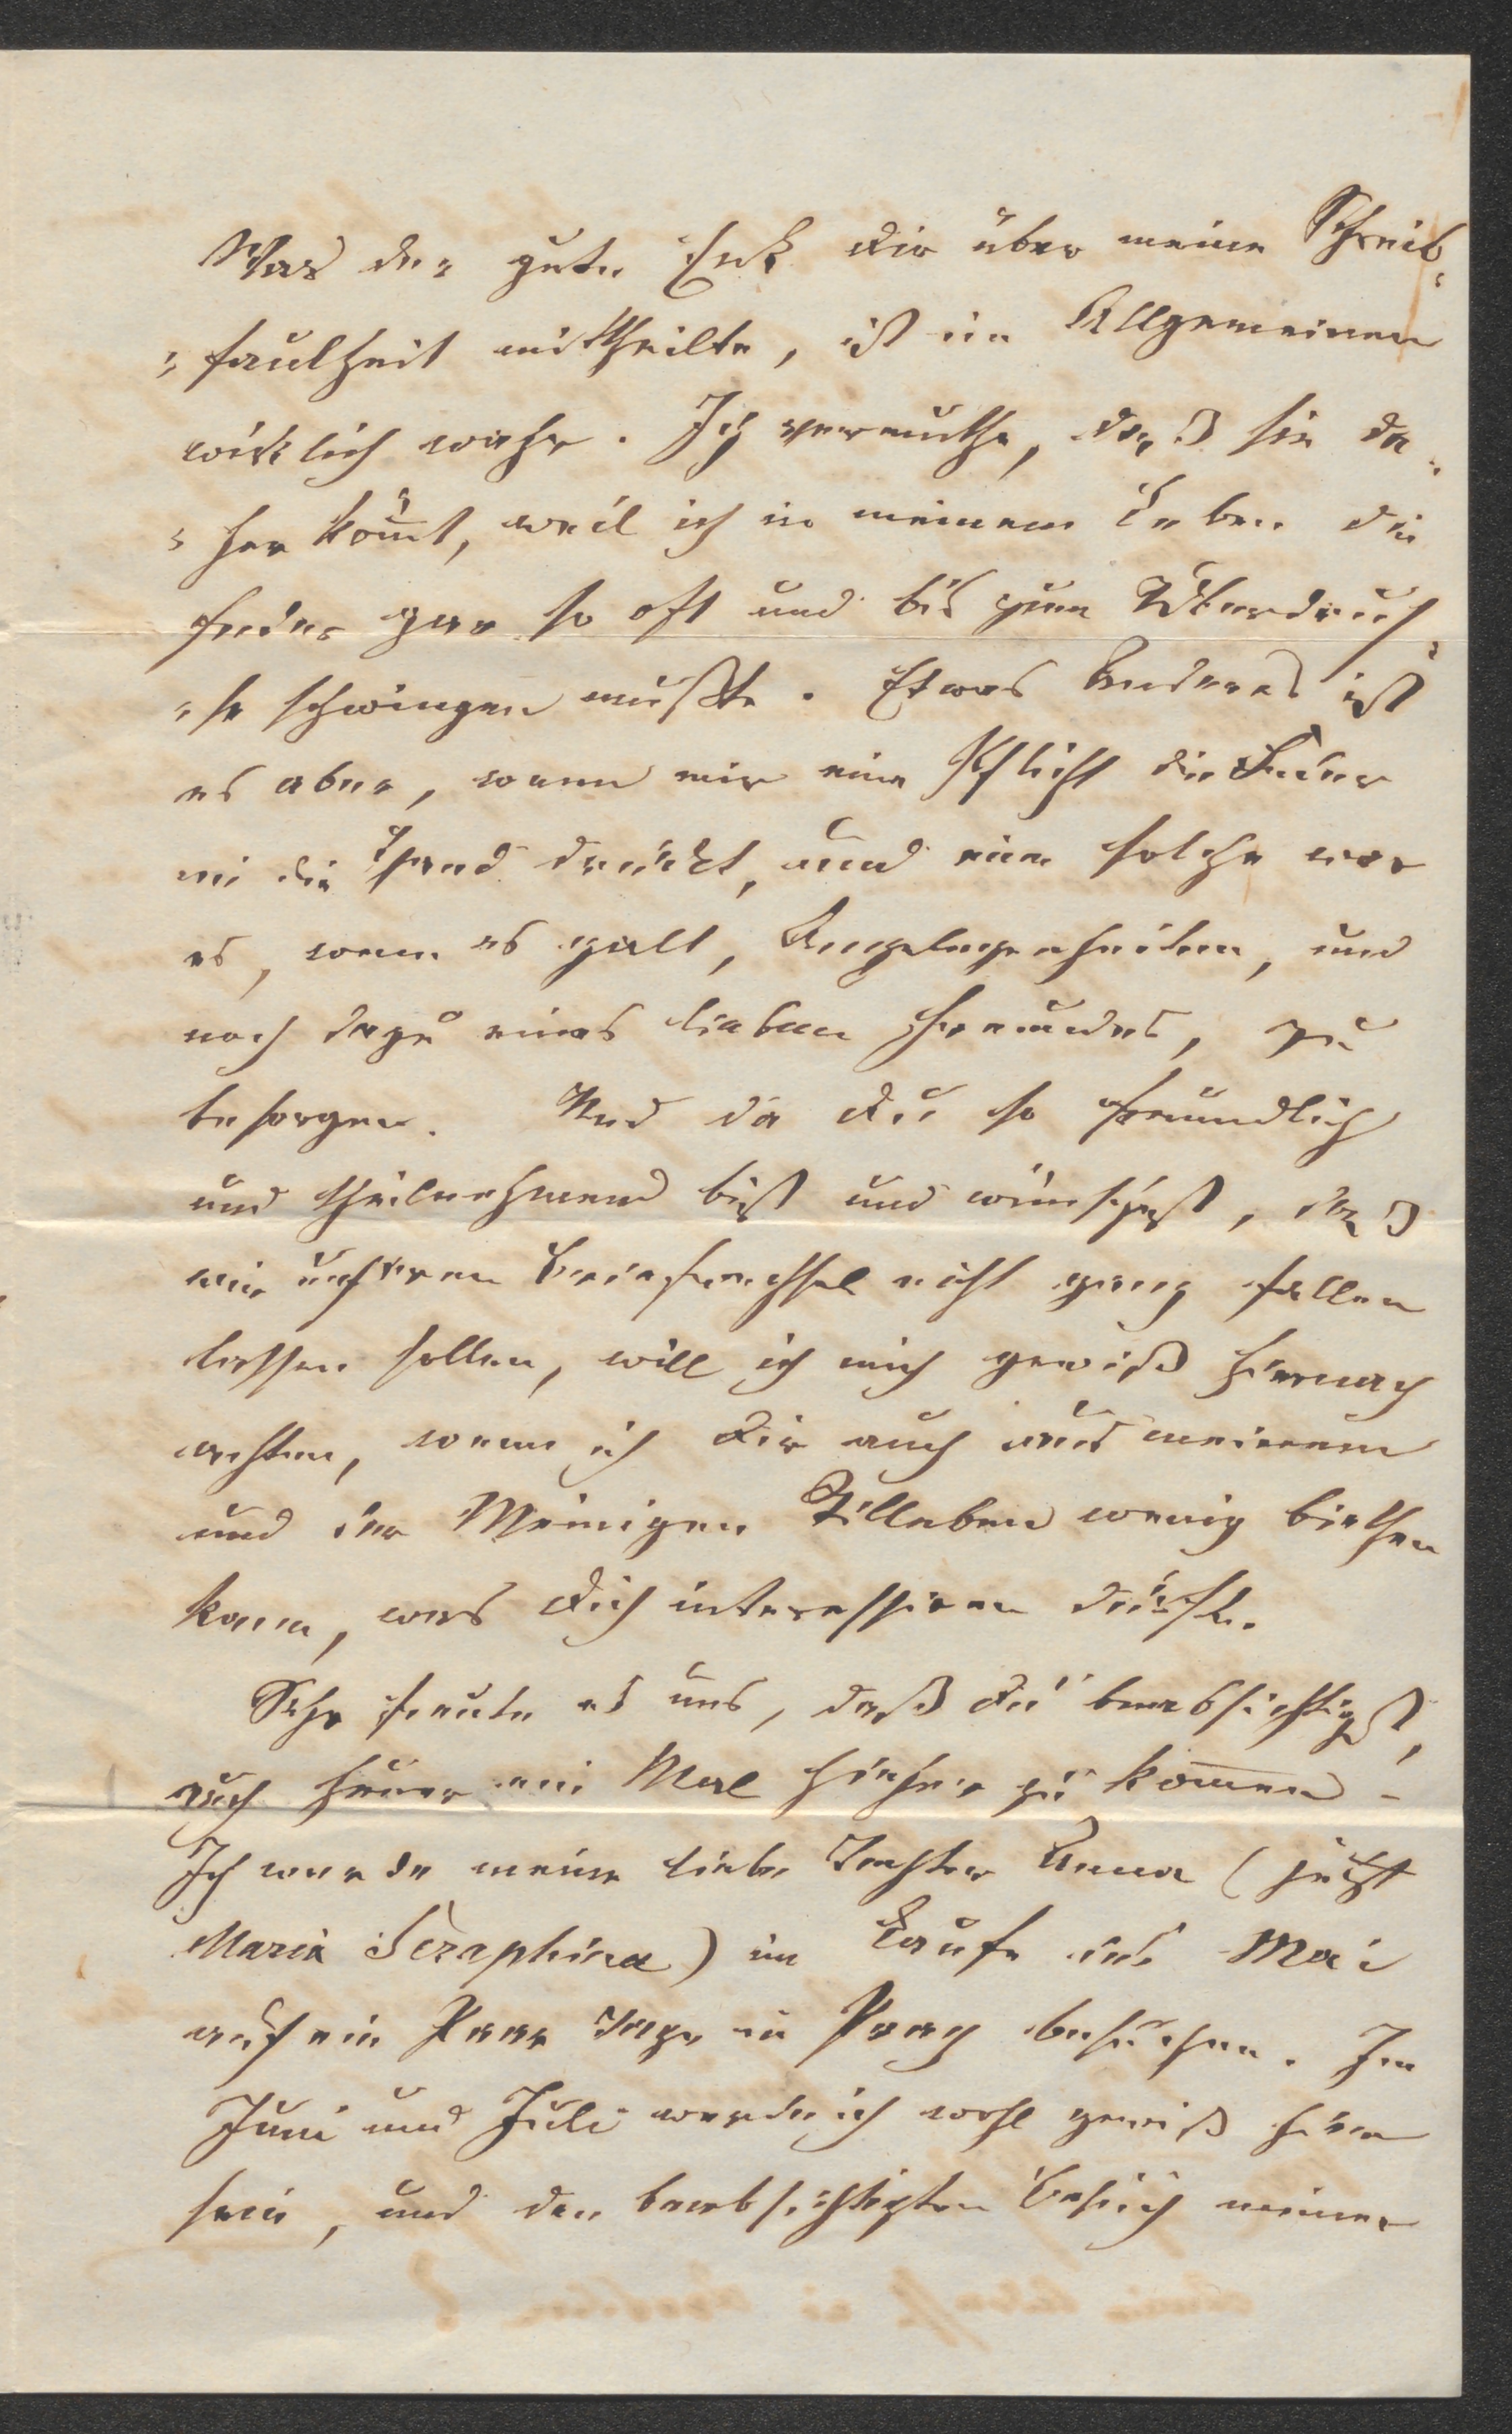 Was der gute Enk Dir über meine Schreib-
-faulheit mittheilte, ist im Allgemeinen
wirklich wahr. Ich vermuthe, daß sie da-
-her kom̄t, weil ich in meinem Leben die
Feder gar so oft und bis zum Überdruß-
-se schwingen mußte. Etwas Anderes ist
es aber, wenn mir eine Pflicht die Feder
in die Hand drückt, und eine solche war
es, wenn es galt, Angelegenheiten, und
noch dazu eines lieben Freundes, zu
besorgen. Und da Du so freundlich
und theilnehmend bist und wünschest, daß
wir unseren Briefwechsel nicht ganz fallen
lassen sollen, will ich mich gewiß hiernach
achten, wenn ich Dir auch aus meinem
und der Meinigen Stilleben wenig biethen
kann, was Dich interessiren dürfte.
Sehr freute es uns, daß Du beabsichtigst,
auch heuer ein Mal hieher zu kom̄en -
Ich werde meine liebe Tochter Anna (jetzt
Maria Seraphina) im Laufe des Mai
auf ein Paar Tage in Prag besuchen. Im
Juni und Juli werde ich wohl gewiß hier
sein, und den beabsichtigten Besuch meiner